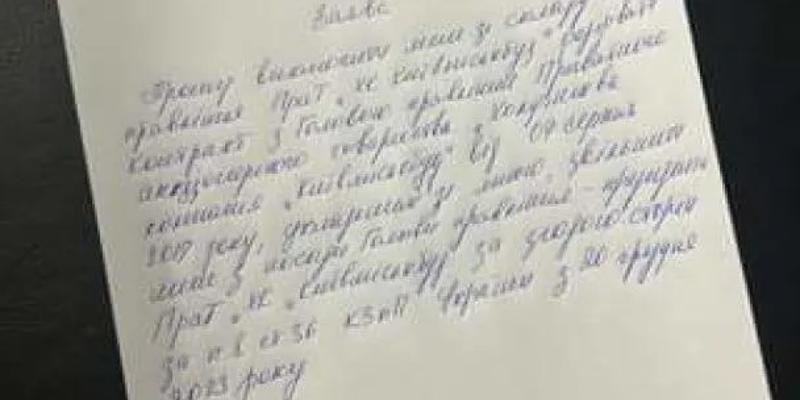 Заява
Прошу виключити мене зі складу
правління ПрАТ "ХК "Київміськбуд", розірвати
контракт з Головою правління Приватного
акціонерного товариства "Холдингова
компанія "Київміськбуд" від 07 серпня
2017 року, укладений зі мною, звільнити
мене з посади Голови правління - президента
ПрАТ "ХК "Київміськбуд" за згодою сторін
за п 1 ст 36 КЗпП України з 20 грудня
2023 року